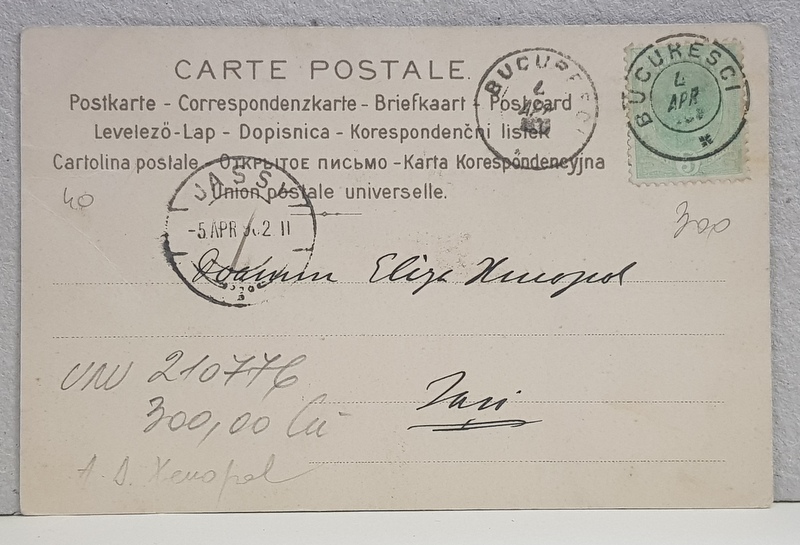 CARTE POSTALE.
Postkarte - Correspondenzkarte - Briefkaart - Postcard
Levelező-Lap - Dopisnica - Korespondenční listek
Cartolina postale - Открытое письмо - Karta Korespondencyjna
Union postale universelle.
BUCURESCI
4
APR
BUCURESCI
4
APR
5
JASSY
-5 APR 902 11
40
300
Doamnei Eliza Xenopol
Iasi
210776
300,00 lei
A. D. Xenopol